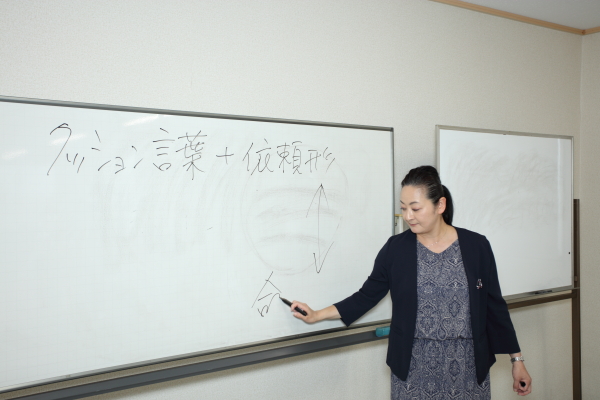 クッション言葉+依頼形
命